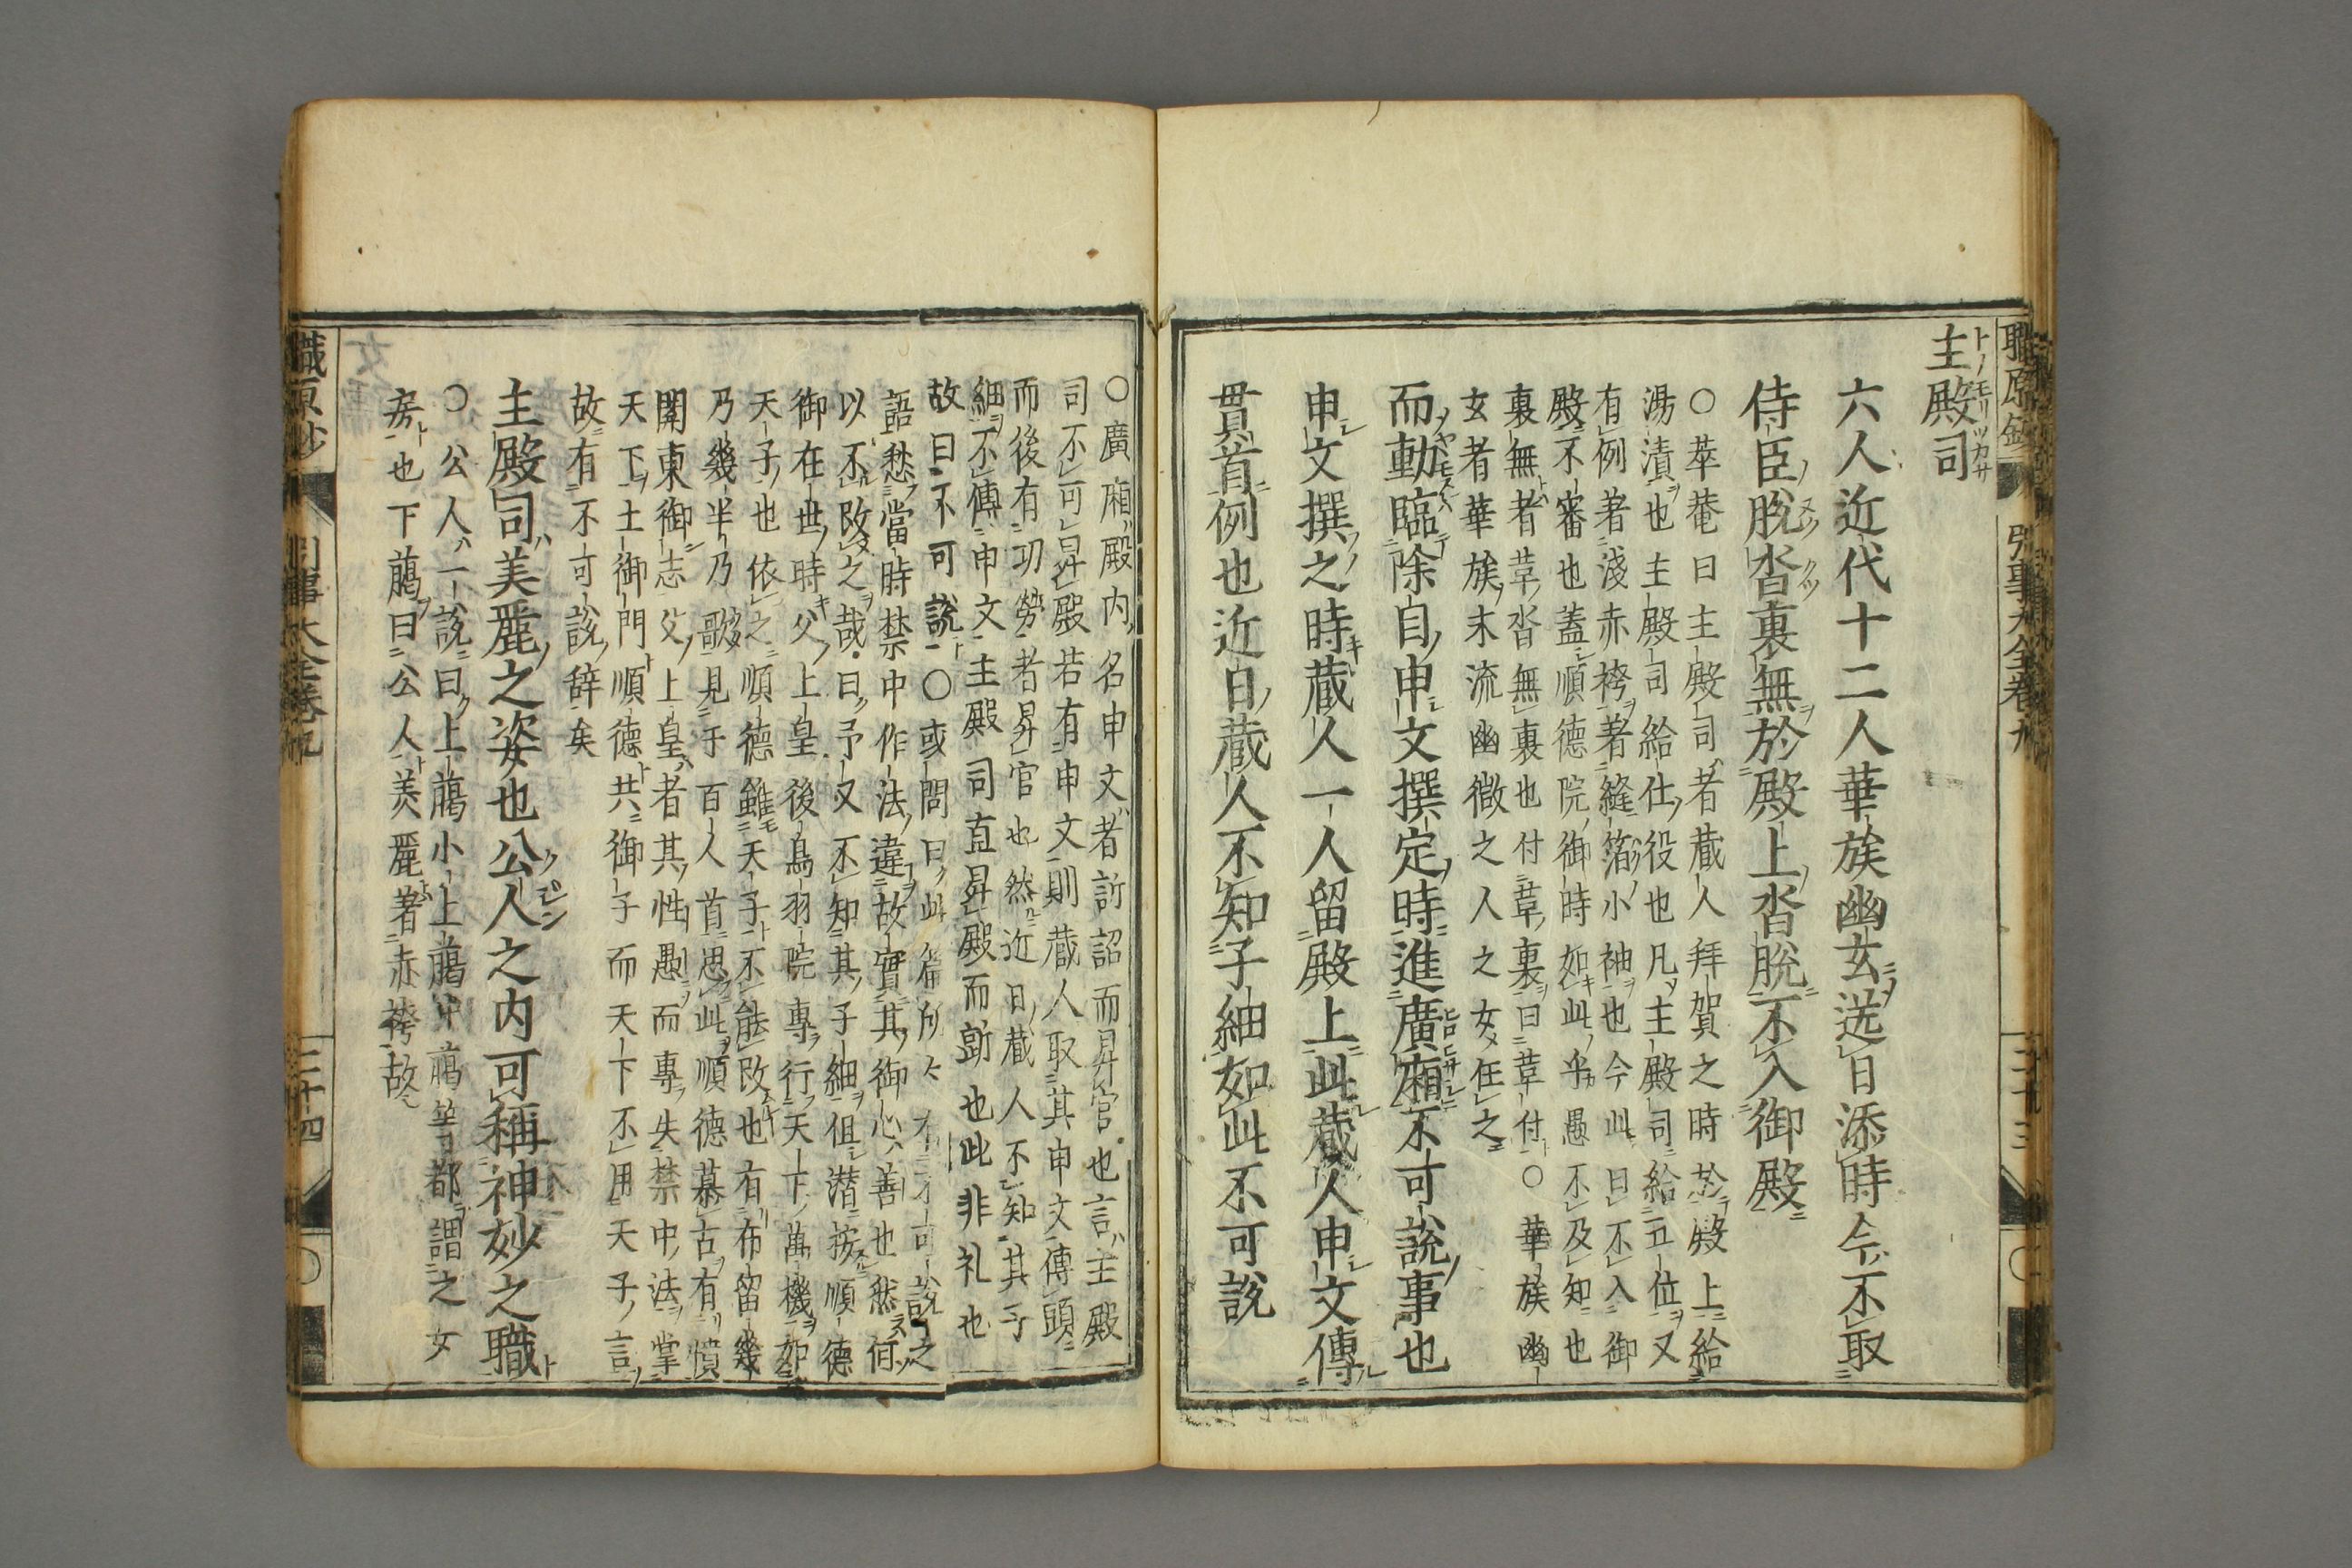 主殿司
六人近代十二人華族幽玄選日添時今不取
侍臣脫沓裏無於殿上沓脫不入御殿
〇莘菴曰主殿司者蔵人拜賀之時於殿上給
湯漬也主殿司給仕役也凡主殿司給五位又
有例著淺赤袴著縫箔小袖也今此日不入御
殿不審也蓋順德院御時如此乎愚不及知也
裏無者草沓無裏也付草裏曰草付〇華族幽
玄者華族末流幽微之人之女任之
而動臨除自申文撰定時進廣廂不可說事也
申文撰之時蔵人一人留殿上此蔵人申文傳
貫首例也近日蔵人不知子細如此不可說
〇廣廂殿内名申文者訴詔而昇官也言主殿
司不可昇殿若有申文則蔵人取其申文傳頭
而後有功勞者昇官也然近日蔵人不知其子
細不傳申文主殿司直昇殿而訴也此非礼也
故曰不可說〇或問曰此篇所々有不可說之
語愁當時禁中作法違故實其御心善也然何
以不改之哉曰予又不知其子細但潜按順德
御在世時父上皇後鳥羽院專行天下萬機如
天子也依之順德雖天子不能改也有布留幾
乃幾半乃歌見于百人首思此順德慕古有憤
關東御志父上皇者其性愚而專失禁中法掌
天下土御門順德共御子而天下不用天子言
故有不可說辞矣
主殿司美麗之姿也公人之内可稱神妙之職
〇公人一說曰上﨟小上﨟中﨟等都謂之女
房也下﨟曰公人美麗者赤袴故
職原抄
引事大全卷九
二十四